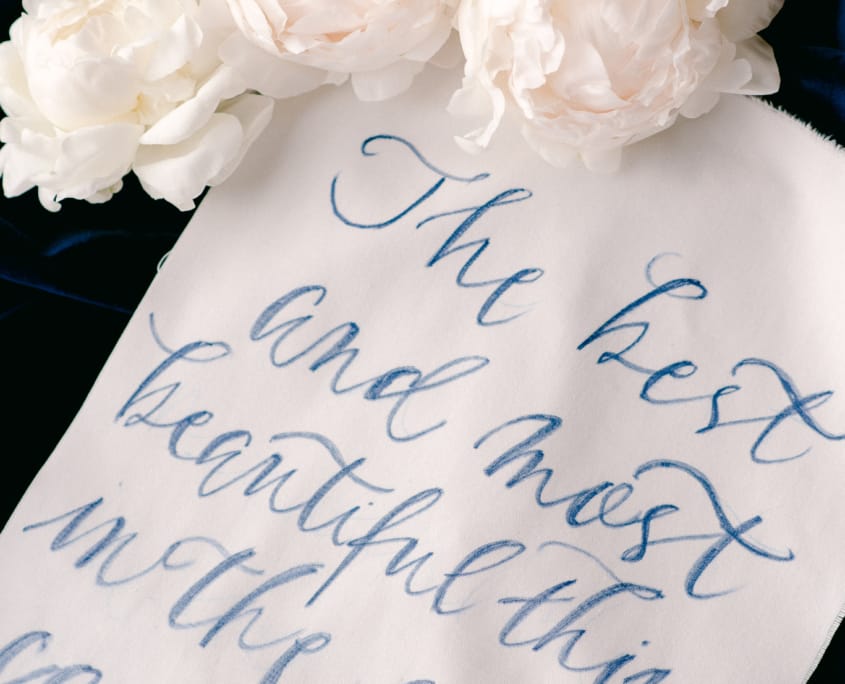 The best
and most
beautiful thin
in the